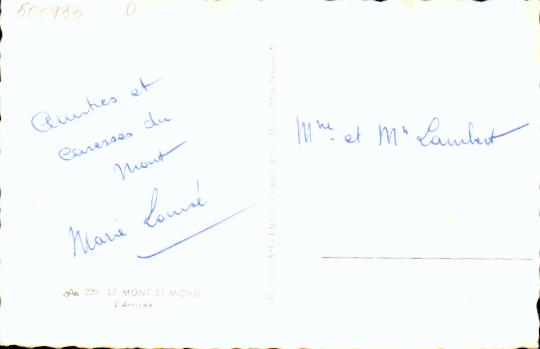 500933 D
Amitiés et
caresses du
Mont
Marie Louise
229 LE MONT ST-MICHEL
L'Arrivée
Mme et Mlle Lambert